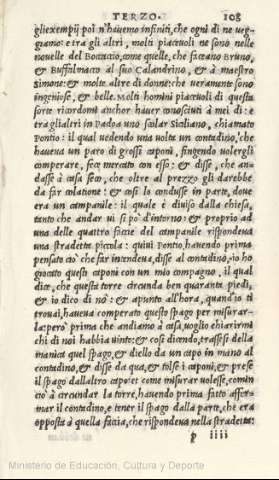 TERZO. 108
gli exempij poi n'havemo infiniti, che ogni dì ne veg-
giamo: e tra gli altri, molti piacevoli ne sono nelle
novelle del Boccaccio, come quelle, che faceano Bruno,
& Buffalmacco al suo Calandrino, & à maestro
Simone: & molte altre di donne: che veramente sono
ingeniose, & belle. Molti homini piacevoli di questa
sorte ricordomi anchor haver conosciuti à mei dì: e
tra gli altri in Padoa uno scolar Siciliano, chiamato
Pontio: il qual vedendo una volta un contadino, che
haveva un paro di grossi caponi, fingendo volergli
comperare, fece mercato con esso: & disse, che an-
dasse à casa seco, che oltre al prezzo gli darebbe
da far colatione: & così lo condusse in parte, dove
era un campanile: il quale è diviso dalla chiesa,
tanto che andar vi si pò d'intorno: & proprio ad
una delle quattro faccie del campanile rispondeva
una stradetta piccola: quivi Pontio, havendo prima
pensato ciò che far intendeva, disse al contadino, io ho
giocato questi caponi con un mio compagno, il qual
dice, che questa torre circunda ben quaranta piedi,
& io dico di nò: & apunto all'hora, quand'io ti
trovai, haveva comperato questo spago per misurar-
la: però prima che andiamo à casa, voglio chiarirmi
chi di noi habbia vinto: & così dicendo, trassesi della
manica quel spago, & diello da un capo in mano al
contadino, & disse da qua, & tolse i caponi, & prese
il spago dall'altro capo: et come misurar volesse, comin
ciò à circundar la torre, havendo prima fatto affer-
mar il contadino, e tener il spago dalla parte, che era
opposta à quella faccia, che rispondeva nella stradetta:
p iiii
Ministerio de Educación, Cultura y Deporte